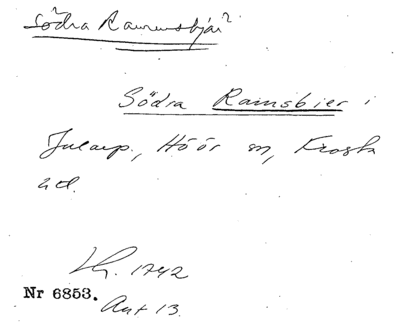 Södra Ramsbjär
Södra Ramsbier i
Jularp, Höör sn, Frosta
hd.
Lh. 1742
Nr 6853.
Ant 13.